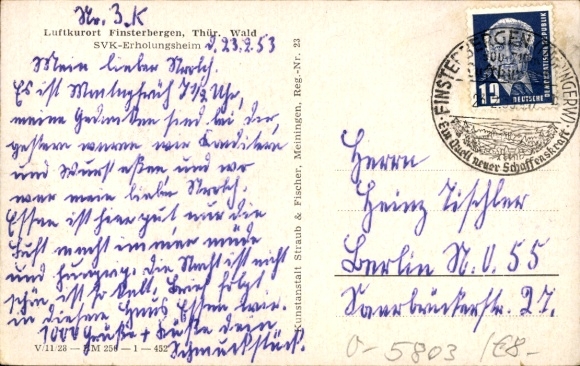 Nr. 3. K
Luftkurort Finsterbergen, Thür. Wald
SVK-Erholungsheim d. 23.2.53
Mein lieber Strolch.
Es ist Montagfrüh 7 1/2 Uhr,
meine Gedanken sind bei dir,
gestern waren wir Konditern
und Wurst essen und wo
war mein lieber Strolch.
Essen ist hier gut, nur die
Luft macht immer müde
und hungrig. Die Nacht ist nicht
schön, ist so kalt. Brief folgt
in diesem Haus Essen wir.
1000 Grüße + Küsse dein
Schmuckstück.
V/11/28 — BM 250 — 1 — 452
Kunstanstalt Straub & Fischer, Meiningen, Reg.-Nr. 23
12
DEUTSCHE
DEMOKRATISCHE REPUBLIK
FINSTERBERGEN
Ein Quell neuer Schaffenskraft
Herrn
Heinz Tischler
Berlin N.O. 55
Saarbrückerstr. 27.
0- 5803 /€8-